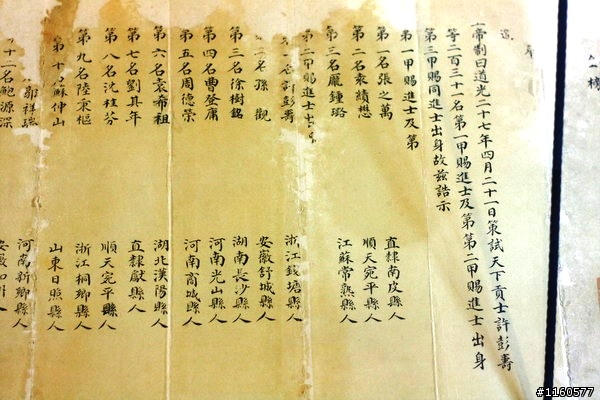 帝制曰道光二十七年四月二十一日策試天下貢士許彭壽
等二百三十一名第一甲賜進士及第第二甲賜進士出身
第三甲賜同進士出身故茲誥示
第一甲賜進士及第
第一名張之萬 直隸南皮縣人
第二名袁績懋 順天宛平縣人
第三名龐鍾璐 江蘇常熟縣人
第二甲賜進士出
許彭壽 浙江錢塘縣人
名孫觀 安徽舒城縣人
第三名徐樹銘 湖南長沙縣人
第四名曹登庸 河南光山縣人
第五名周德榮 河南商城縣人
第六名袁希祖 湖北漢陽縣人
第七名劉其年 直隸獻縣人
第八名沈桂芬 順天宛平縣人
第九名陸秉樞 浙江桐鄉縣人
第十名蘇仲山 山東日照縣人
郭祥瑞 河南新鄉縣人
十二名鮑源深
#1160577